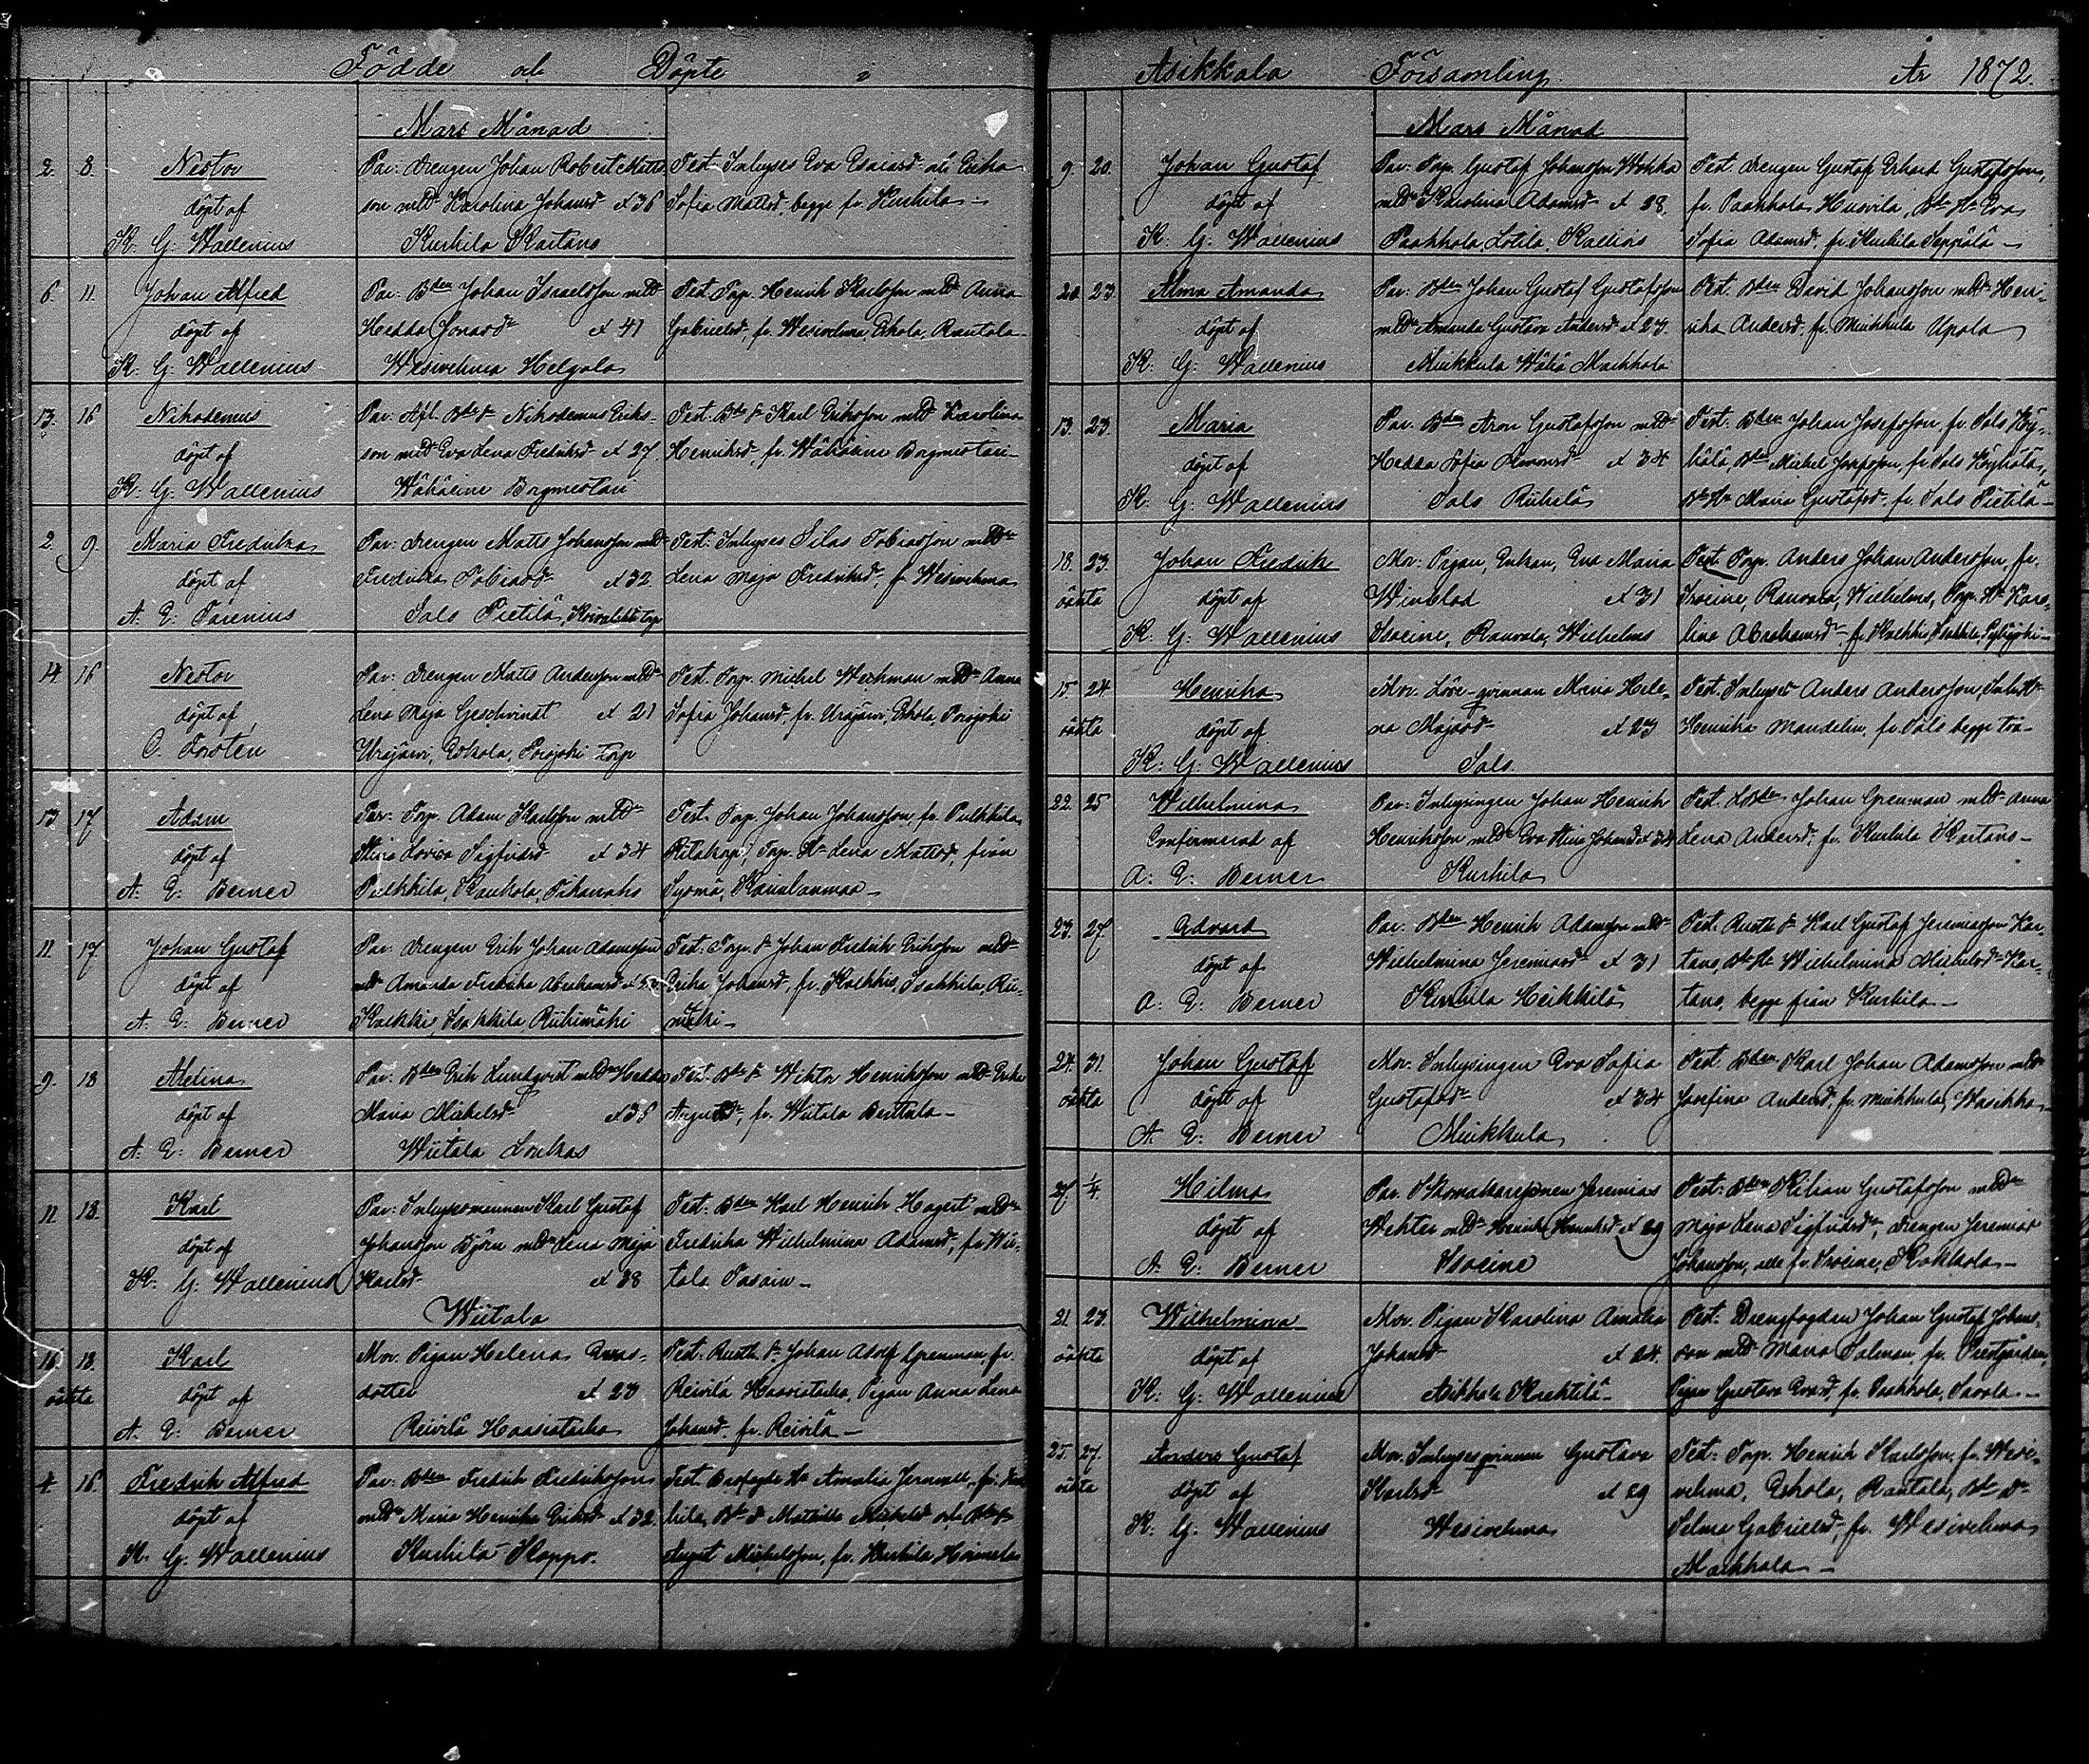 Födde och Döpte i
Mars Månad
2. 8. Nestor
döpt af
K. G. Wallenius
Par: Drengen Johan Robert Matts
son mldr Karolina Johansd æt 36
Kurhila Kaitans
Test. Inhyses Eva Esaiasd och Erika
Sofia Mattsd, begge fr. Kurhila –
6. 11. Johan Alfred
döpt af
K. G. Wallenius
Par: Bden Johan Israelsson mldr
Hedda Jonasdr æt 41
Wesivehma Helgola
Test. Torp. Henrik Karlsson mldr Anna
Gabrielsd, fr. Wesivehma, Eskola, Rantala –
13. 16 Nikodemus
döpt af
K. G. Wallenius
Par: Afl. Bde Sn Nikodemus Eriks-
son mldr Eva Lena Fredriksd æt 27.
Wähäeine Borgmestari
Test. Bde Sn Karl Eriksson mldr Karolina
Henriksd, fr. Wähäeine Borgmestari –
2. 9. Maria Fredrika
döpt af
A. E: Forenius
Par: Drengen Matts Johansson mldr
Fredrika Tobiasd æt 32
Sals Pietilä, torp
Test: Inhyses Silas Tobiasson mldr
Lena Maja Fredriksd, fr Wesivehma
14. 16 Nestor
döpt af
C. Forstén
Par: Drengen Matts Andersson mldr
Lena Maja Geschvint æt 21
Urajärvi, Eskola, Porojoki torp
Test. Torp. Michel Weckman mldr Anna
Sofia Johansd, fr. Urajärvi, Eskola, Porojoki
13. 17 Adam
döpt af
A. E: Berner
Par: Torp. Adam Karlsson mldr
Stina Lovisa Sigfridsd æt 34
Pulkkila, Kaukola, Tihanaho
Test. Torp. Johan Johansson, fr. Pulkkila
Torp. Hu Lena Mattsd, från
Sysmä,
11. 17. Johan Gustaf
döpt af
A. E: Berner
Par: Drengen Erik Johan Adamsson
mldr Amanda Fredrika Abrahamsd
Kalkkis, Isakkila, Riihimäki
Test. Torp. Sn Johan Fredrik Eriksson mldr
Erika Johansd, fr. Kalkkis, Isakkila, Rii-
mäki –
9. 18 Medina
döpt af
A. E: Berner
Par. Bden Erik Lundqvist mldr Hedda
Maria Michelsdr æt 36
Wiitala Loukas
Test. Bde Sn Wiktor Henriksson mldr Erika
Augustsdr, fr. Wiitala Bertula –
11. 18. Karl
döpt af
K: G. Wallenius
Par: Inhysesmannen Karl Gustaf
Johansson Björn mldr Lena Maja
Karlsdr æt 38
Wiitala
Test. Bden Karl Henrik Hagert mldr
Fredrika Wilhelmina Adamsd, fr Wii-
tala Pasain –
16. 18. Karl
oäkta döpt af
A. E: Berner
Mor. Pigan Helena Evas-
dotter æt 20
Reivilä Haasiataka
Test. Rusth. Sn Johan Adolf Grenman fr.
Reivilä Haasiataka, Pigan Anna Lena
Johansd. fr. Reivilä –
4. 16. Fredrik Alfred
döpt af
K. G. Wallenius
Par. Bden Fredrik Fredriksson
mldr Maria Henrika Eriksd æt 32.
Kurhila Koppo.
Test. Hu Amalia fr. Kur-
hila, Bde D Mathilda Michelsd och Bde Sn
August Michelsson, fr. Kurhila
Asikkala Församling År 1872.
Mars Månad
9. 20. Johan Gustaf
döpt af
K: G: Wallenius
Par. Torp. Gustaf Johansson Wokka
mldr Karolina Adamsd æt 28.
Paakkola, Lotila, Kallios
Test. Drengen Gustaf Erhard Gustafsson,
fr. Paakkola Husvila, Bde Hu Eva
Sofia Adamsd, fr Kurhila Seppälä –
20. 23. Alma Amanda
döpt af
K: G: Wallenius
Par: Bden Johan Gustaf Gustafsson
mldr Amanda Gustava Andersd æt 27.
Muikkula Wähä Markkola
Test. Bden David Johansson mldr Hen-
rika Andersd. fr. Muikkula Upola
13. 23. Maria
döpt af
K: G: Wallenius
Par. Bden Aron Gustafsson mldr
Hedda Sofia Simonsd æt 34
Sals Riihelä
Test. Bden Johan Josefsson, fr. Sals Köy-
hälä, Bden Michel Josefsson, fr Sals Köyhälä,
Bde Hu Maria Gustafsd. fr. Sals Pietilä –
18. 23. Johan Fredrik
oäkta döpt af
K: G. Wallenius
Mor: Pigan, Enkan, Eva Maria
Winblad æt 31
Isoeine, Rauvola, Wilhelms
Test Torp. Anders Johan Andersson, fr.
Isoeine, Rauvola, Wilhelms, Torp. Hu Karo-
lina Abrahamsd – fr Kalkkis Isakkila,
15 24 Henrika
oäkta döpt af
K: G: Wallenius
Mor. Löse-qvinnan Maria Hele-
na Majasdr æt 23
Sals.
Test. Inhyses Anders Andersson, Inh. Hu
Henrika Mandelin, fr. Sals begge två –
22. 25 Wilhelmina
Confirmerad af
A: E: Berner
Par: Inhysingen Johan Henrik
Henriksson mldr Eva Stina Johansd æt 34
Kurhila
Test. Johan Grenman mldr Anna
Lena Andersd, fr. Kurhila Kaitans –
23. 27. Edvard
döpt af
A: E: Berner
Par. Bden Henrik Adamsson mldr
Wilhelmina Jeremiasd æt 31
Kurhila Heikkilä
Test. Rusth. Sn Karl Gustaf Jeremiasson Kai-
tans, Bde Hu Wilhelmina Michelsd Kai-
tans, begge från Kurhila –
24. 31. Johan Gustaf
oäkta döpt af
A. E: Berner
Mor. Inhysingen Eva Sofia
Gustafsdr æt 34
Muikkula
Test. Bden Karl Johan Adamsson mldr
Josefina Andersd. fr. Muikkula, Wasikka
27. 1/4. Hilma
döpt af
A. E: Berner
Par. Skomakaremannen Jeremias
Wehter mldr Henrika Henriksd æt 29
Isoeine
Test: Bden Kilian Gustafsson mldr
Maja Lena Sigfridsdr, Drengen Jeremias
Johansson, alla fr. Isoeine, Kokkola –
21. 23. Wilhelmina
oäkta döpt af
K: G. Wallenius
Mor. Pigan Karolina Amalia
Johansd æt 24.
Asikkala Kaehtilä –
Test. Drengfogden Johan Gustaf Johans-
son mldr Maria Salman, fr. Prestgården,
Pigan Gustava Evasd, fr. Paakkola, Savola –
25. 27. Anders Gustaf
oäkta döpt af
K: G. Wallenius
Mor. Inhysesqvinnan Gustava
Karlsd æt 29
Wesivehma
Test. Torp. Henrik Karlsson, fr. Wesi-
vehma, Eskola, Rantala, Bde Dr
Selma Gabrielsd, fr. Wesivehma
Markkola –